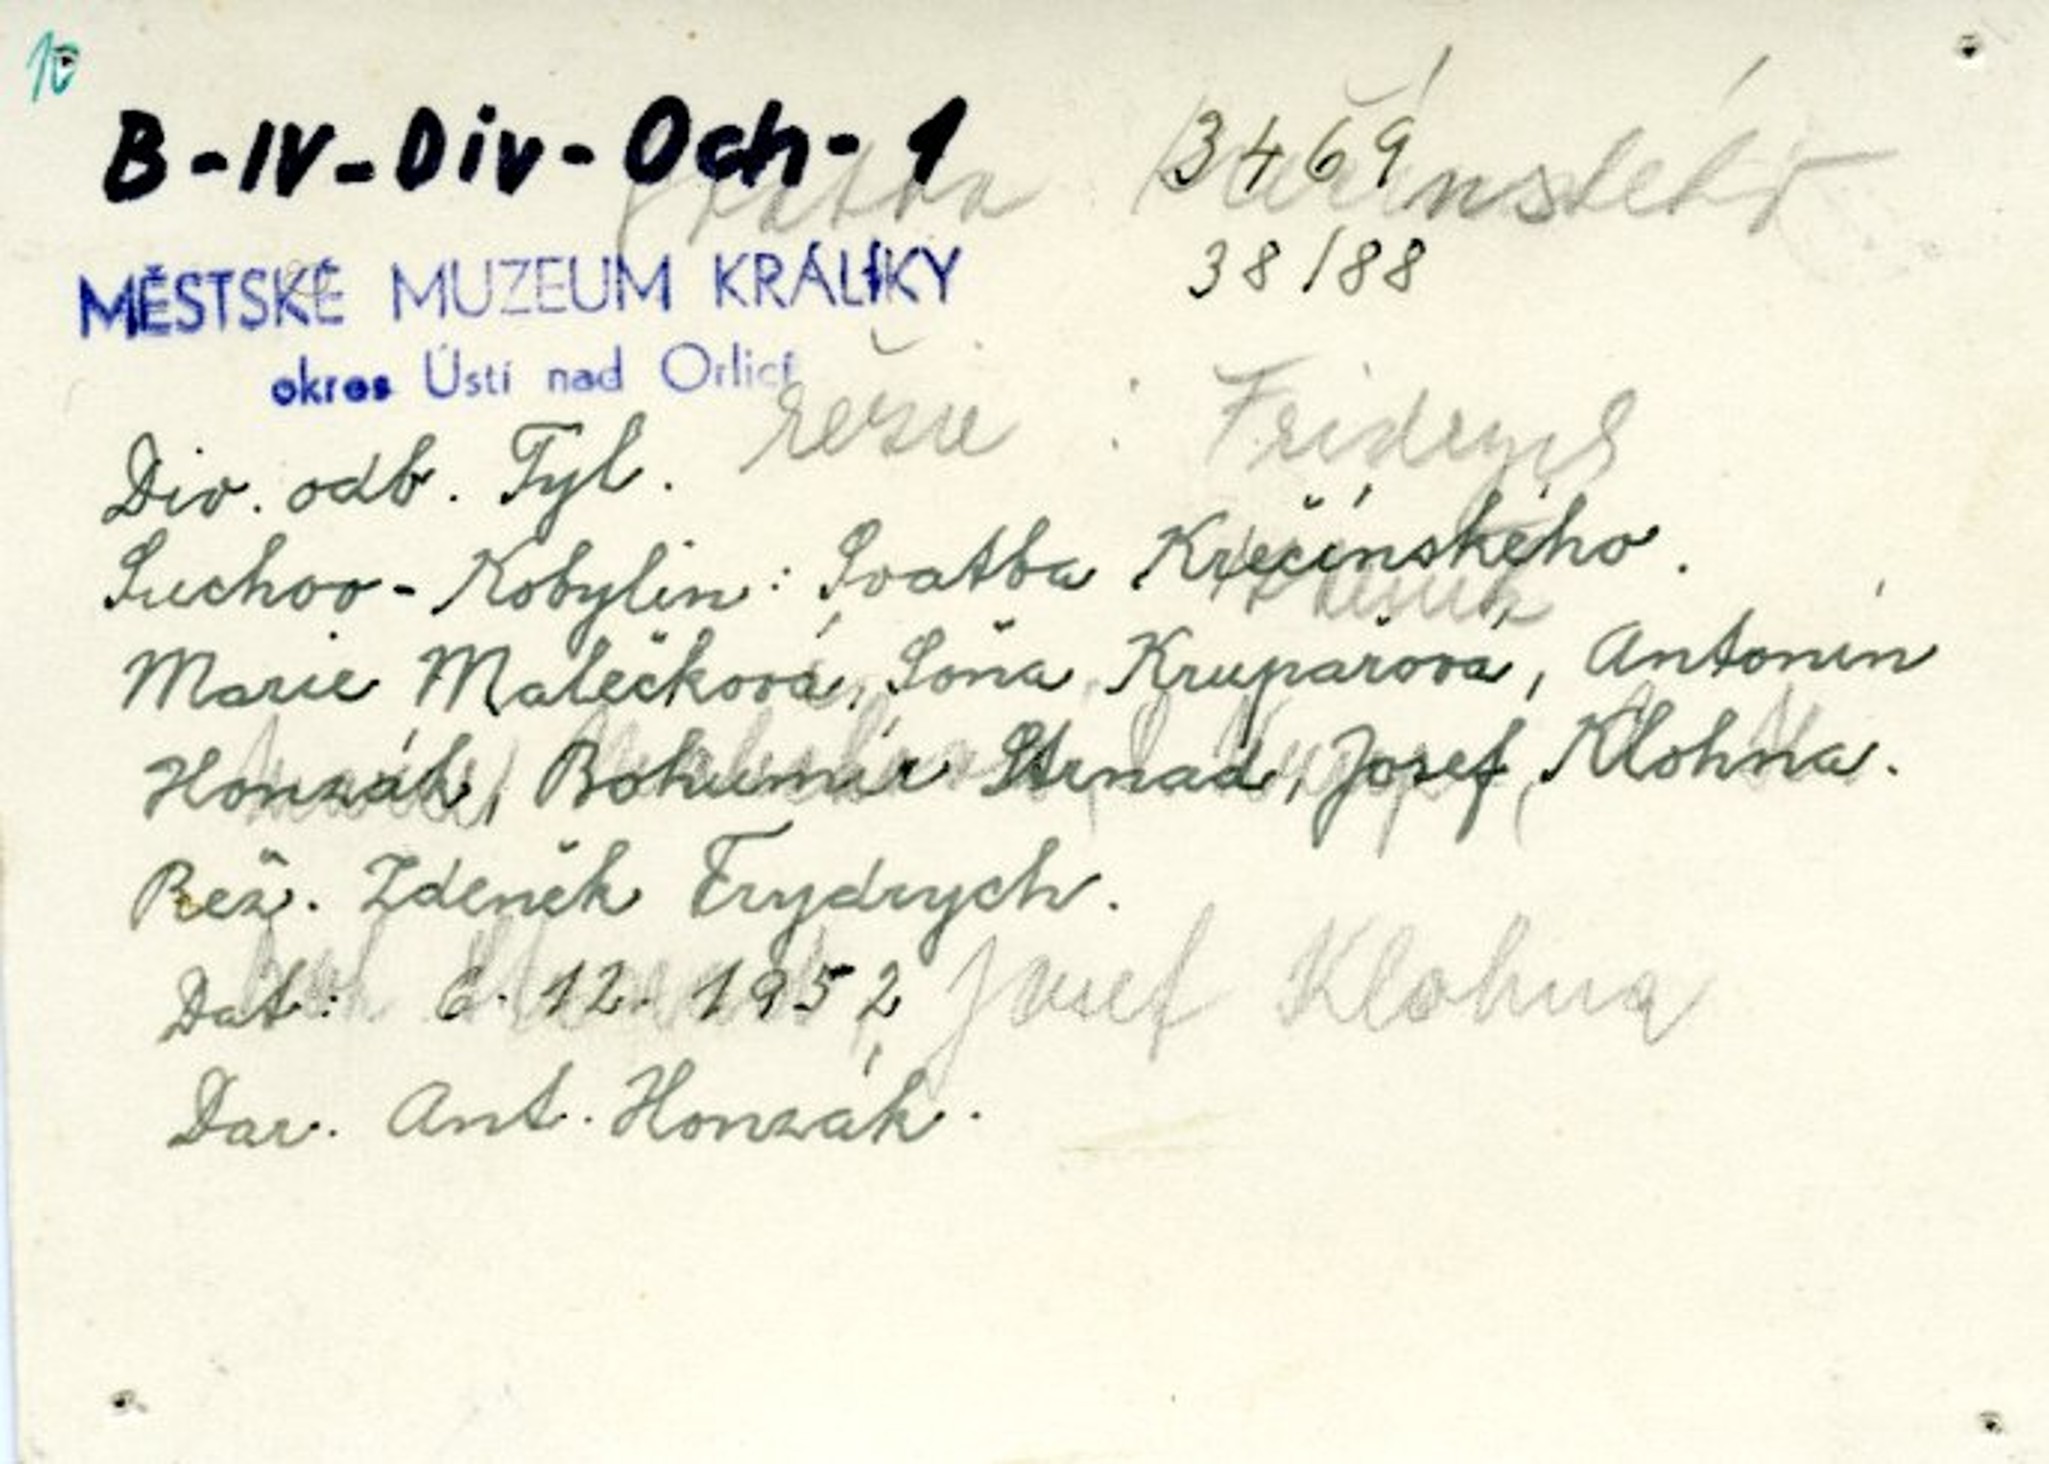 10
B-IV-Div-Och-1
3469
MĚSTSKÉ MUZEUM KRÁLÍKY
38/88
okres Ústí nad Orlicí
režie : Fridrych
Div. odb. Tyl.
Suchov-Kobylin: Svatba Krečínského.
Marie Malečková, Soňa Kruparová, Antonín
Honzák, Bohumír Strnad, Josef Klohna.
Rež. Zdeněk Frydrych.
Dat: 6. 12. 1952
Josef Klohna
Dar. Ant. Honzák.